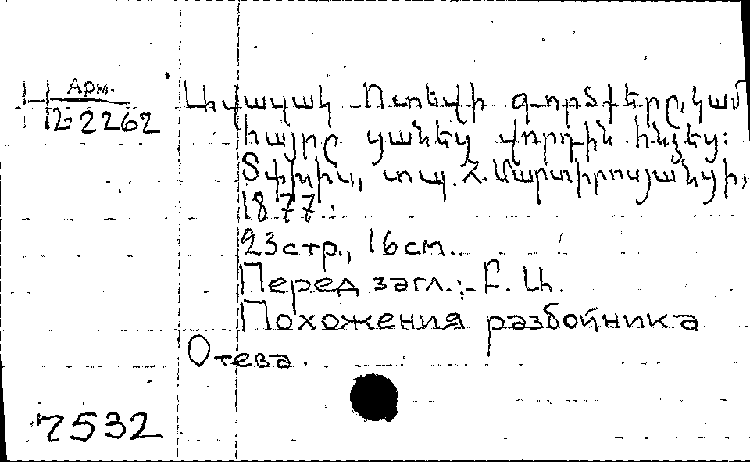 Арм.
12-2262
Ավազակ Ոտեվի գործերը, կամ
հայրը ցանեց որդին հնձեց:
Տփխիս, տպ. Հ. Մարտիրոսյանցի,
1877.
23 стр., 16 см.
Перед загл.:
Похождения разбойника
Отева.
7532